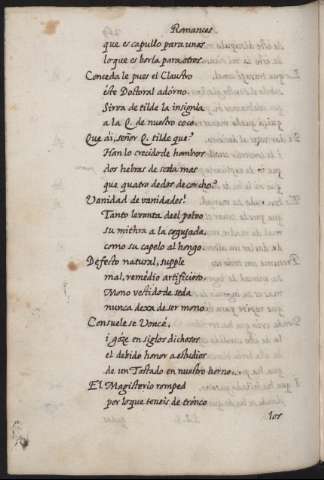 Romances
que es capullo para unos
lo que es borla para otros.
Concedale pues el Claustro
este Doctoral adorno.
Sirva de tilde la insignia
a la Q. de nuestro coco.
Que ai, señor Q. tilde que?
Han lo crecido de hombros
dos hebras de seda mas
que quatro dedos de corcho?
Vanidad de vanidades!
Tanto levanta del polvo
su mithra a la cogujada,
como su capelo al hongo.
Defecto natural, supple
mal, remedio artificioso.
Mono vestido de seda
nunca dexa de ser mono.
Consuelese Voacé,
i góze en siglos dichosos
el debido honor a estudios
de un Tostado en nuestro horno.
El Magisterio romped
por lo que teneis de tronco
los